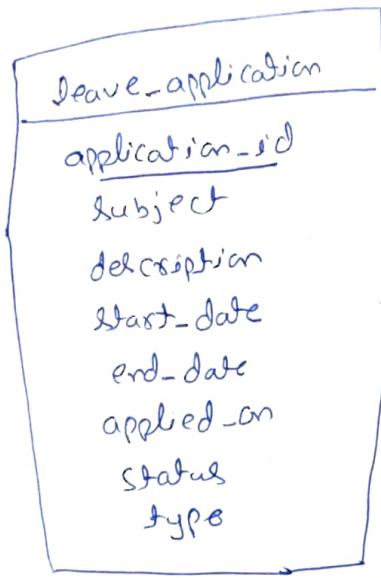 leave_application
application_id
subject
description
start_date
end_date
applied_on
status
type